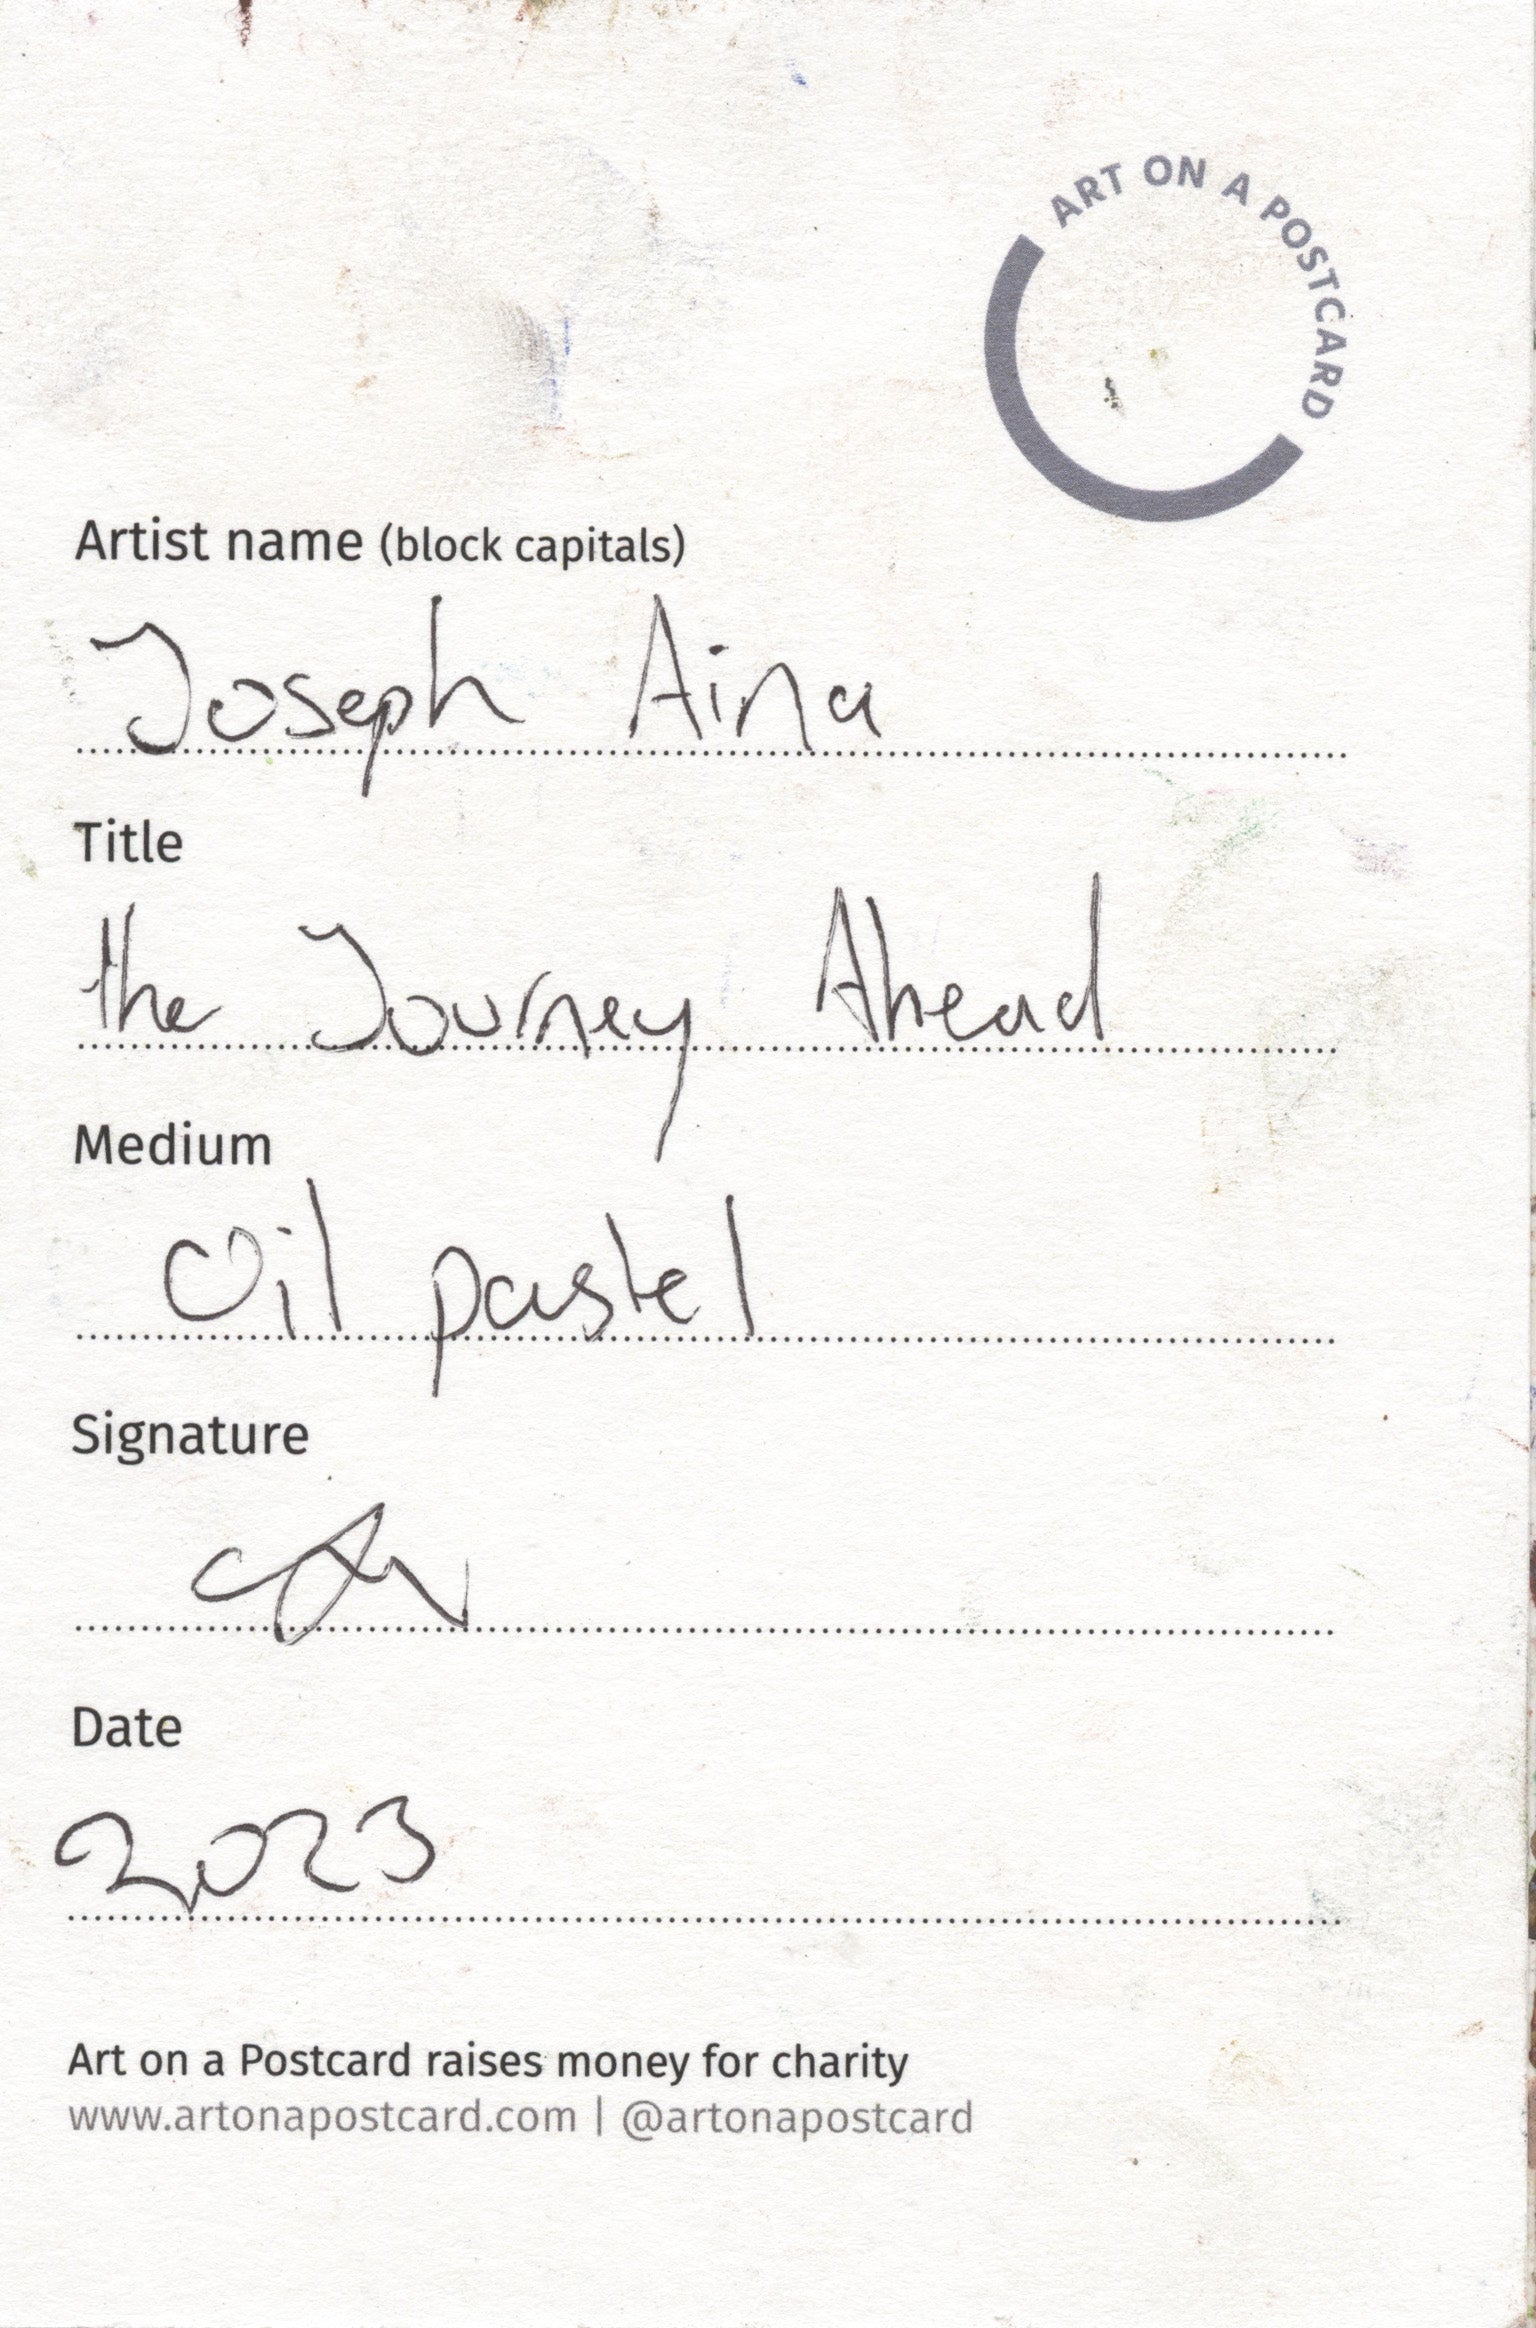 ART ON A POSTCARD
Artist name (block capitals)
Joseph Aina
Title
the Journey Ahead
Medium
Oil pastel
Signature
Date
2023
Art on a Postcard raises money for charity
www.artonapostcard.com | @artonapostcard